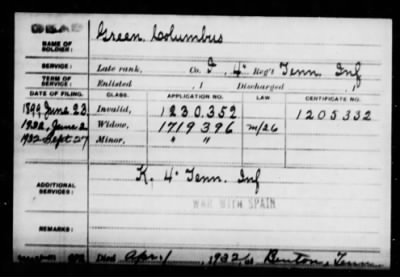 DEAD
NAME OF SOLDIER: Green, Columbus
SERVICE: Late rank, Co. F, 4" Reg't Tenn Inf
TERM OF SERVICE: Enlisted , 1 Discharged , 1
DATE OF FILING. CLASS. APPLICATION NO. LAW CERTIFICATE NO.
1899, June 23 Invalid, 1230.352 1205332
1932, June 2 Widow, 1719396 m/26
1932 Sept 27 Minor, " "
ADDITIONAL SERVICES: K. 4" Tenn. Inf
WAR WITH SPAIN
REMARKS:
Died Apr. 1 1932 at Benton, Tenn